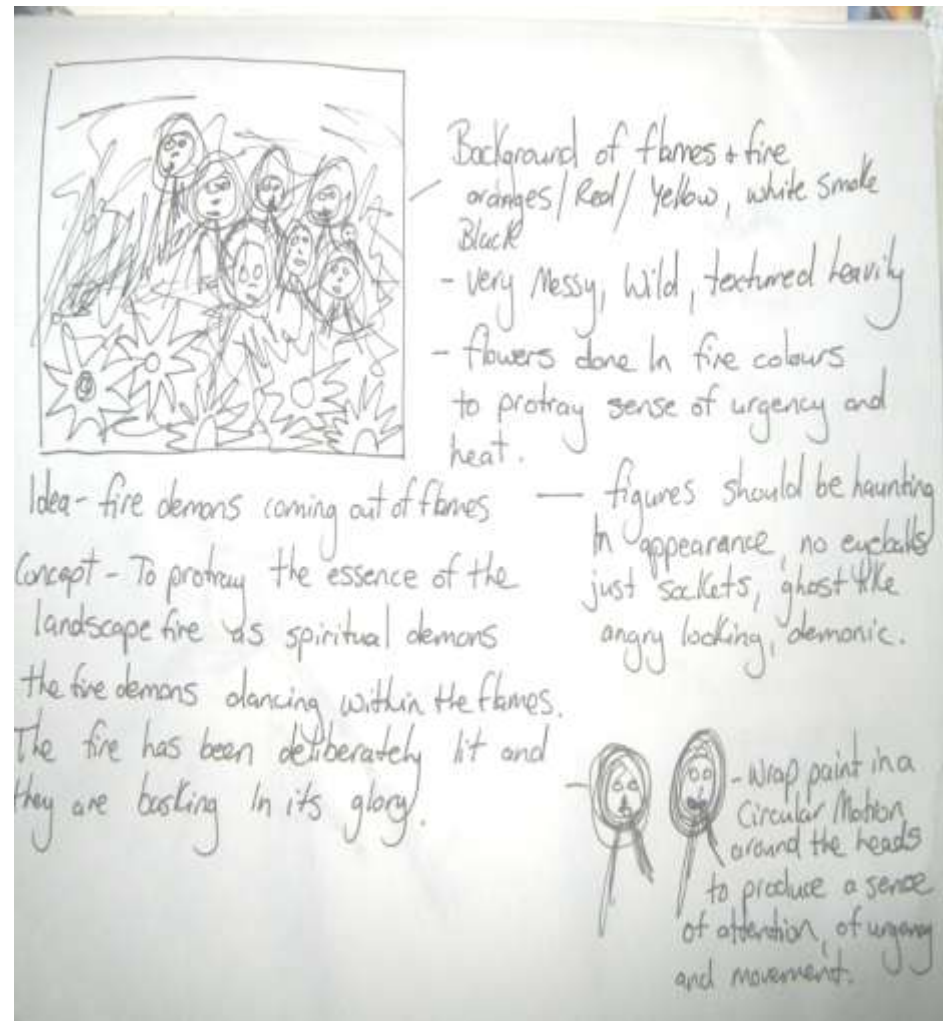 Background of flames + fire
oranges/Red/Yellow, white smoke
Black
- very Messy, Wild, textured heavily
- flowers done In fire colours
to protray sense of urgency and
heat.
Idea - fire demons coming out of flames
Concept - To protray the essence of the
landscape fire as spiritual demons
the fire demons dancing within the flames.
The fire has been deliberately lit and
they are basking In its glory.
— figures should be haunting
In appearance, no eyeballs
just sockets, ghost like
angry looking, demonic.
- Wrap paint in a
Circular Motion
around the heads
to produce a sense
of attention, of urgency
and movement.